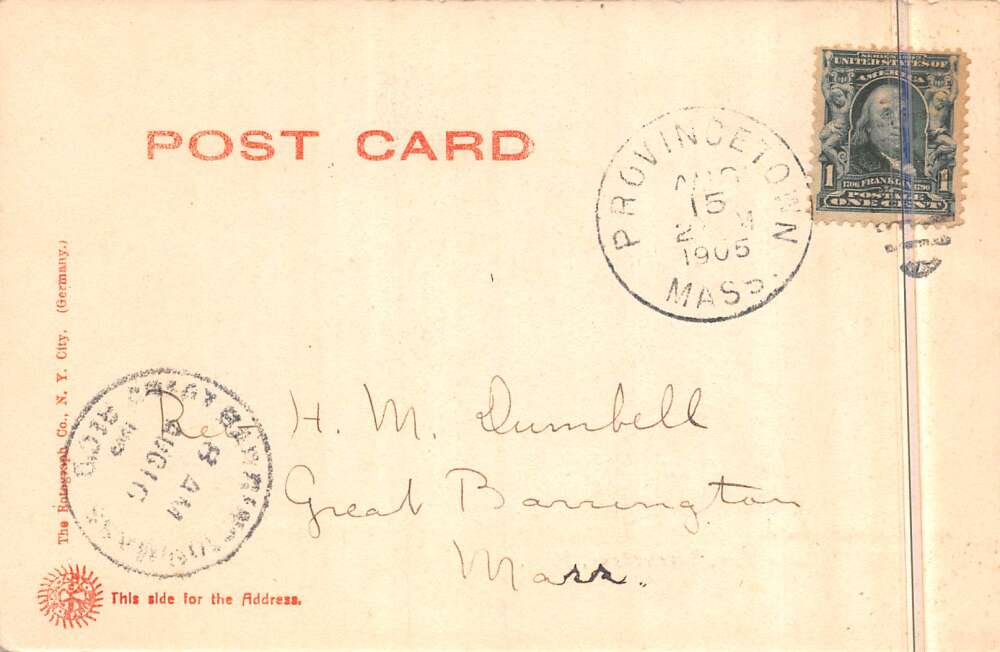 SERIES 1902
UNITED STATES OF
AMERICA
1 1706 FRANKLIN 1790 1
POSTAGE
ONE CENT
POST CARD
PROVINCETOWN
AUG
15
1905
MASS.
The Rotograph Co., N. Y. City. (Germany.)
Rev H. M. Dumbell
Great Barrington
Mass.
8 AM
AUG 16
MASS
This side for the Address.